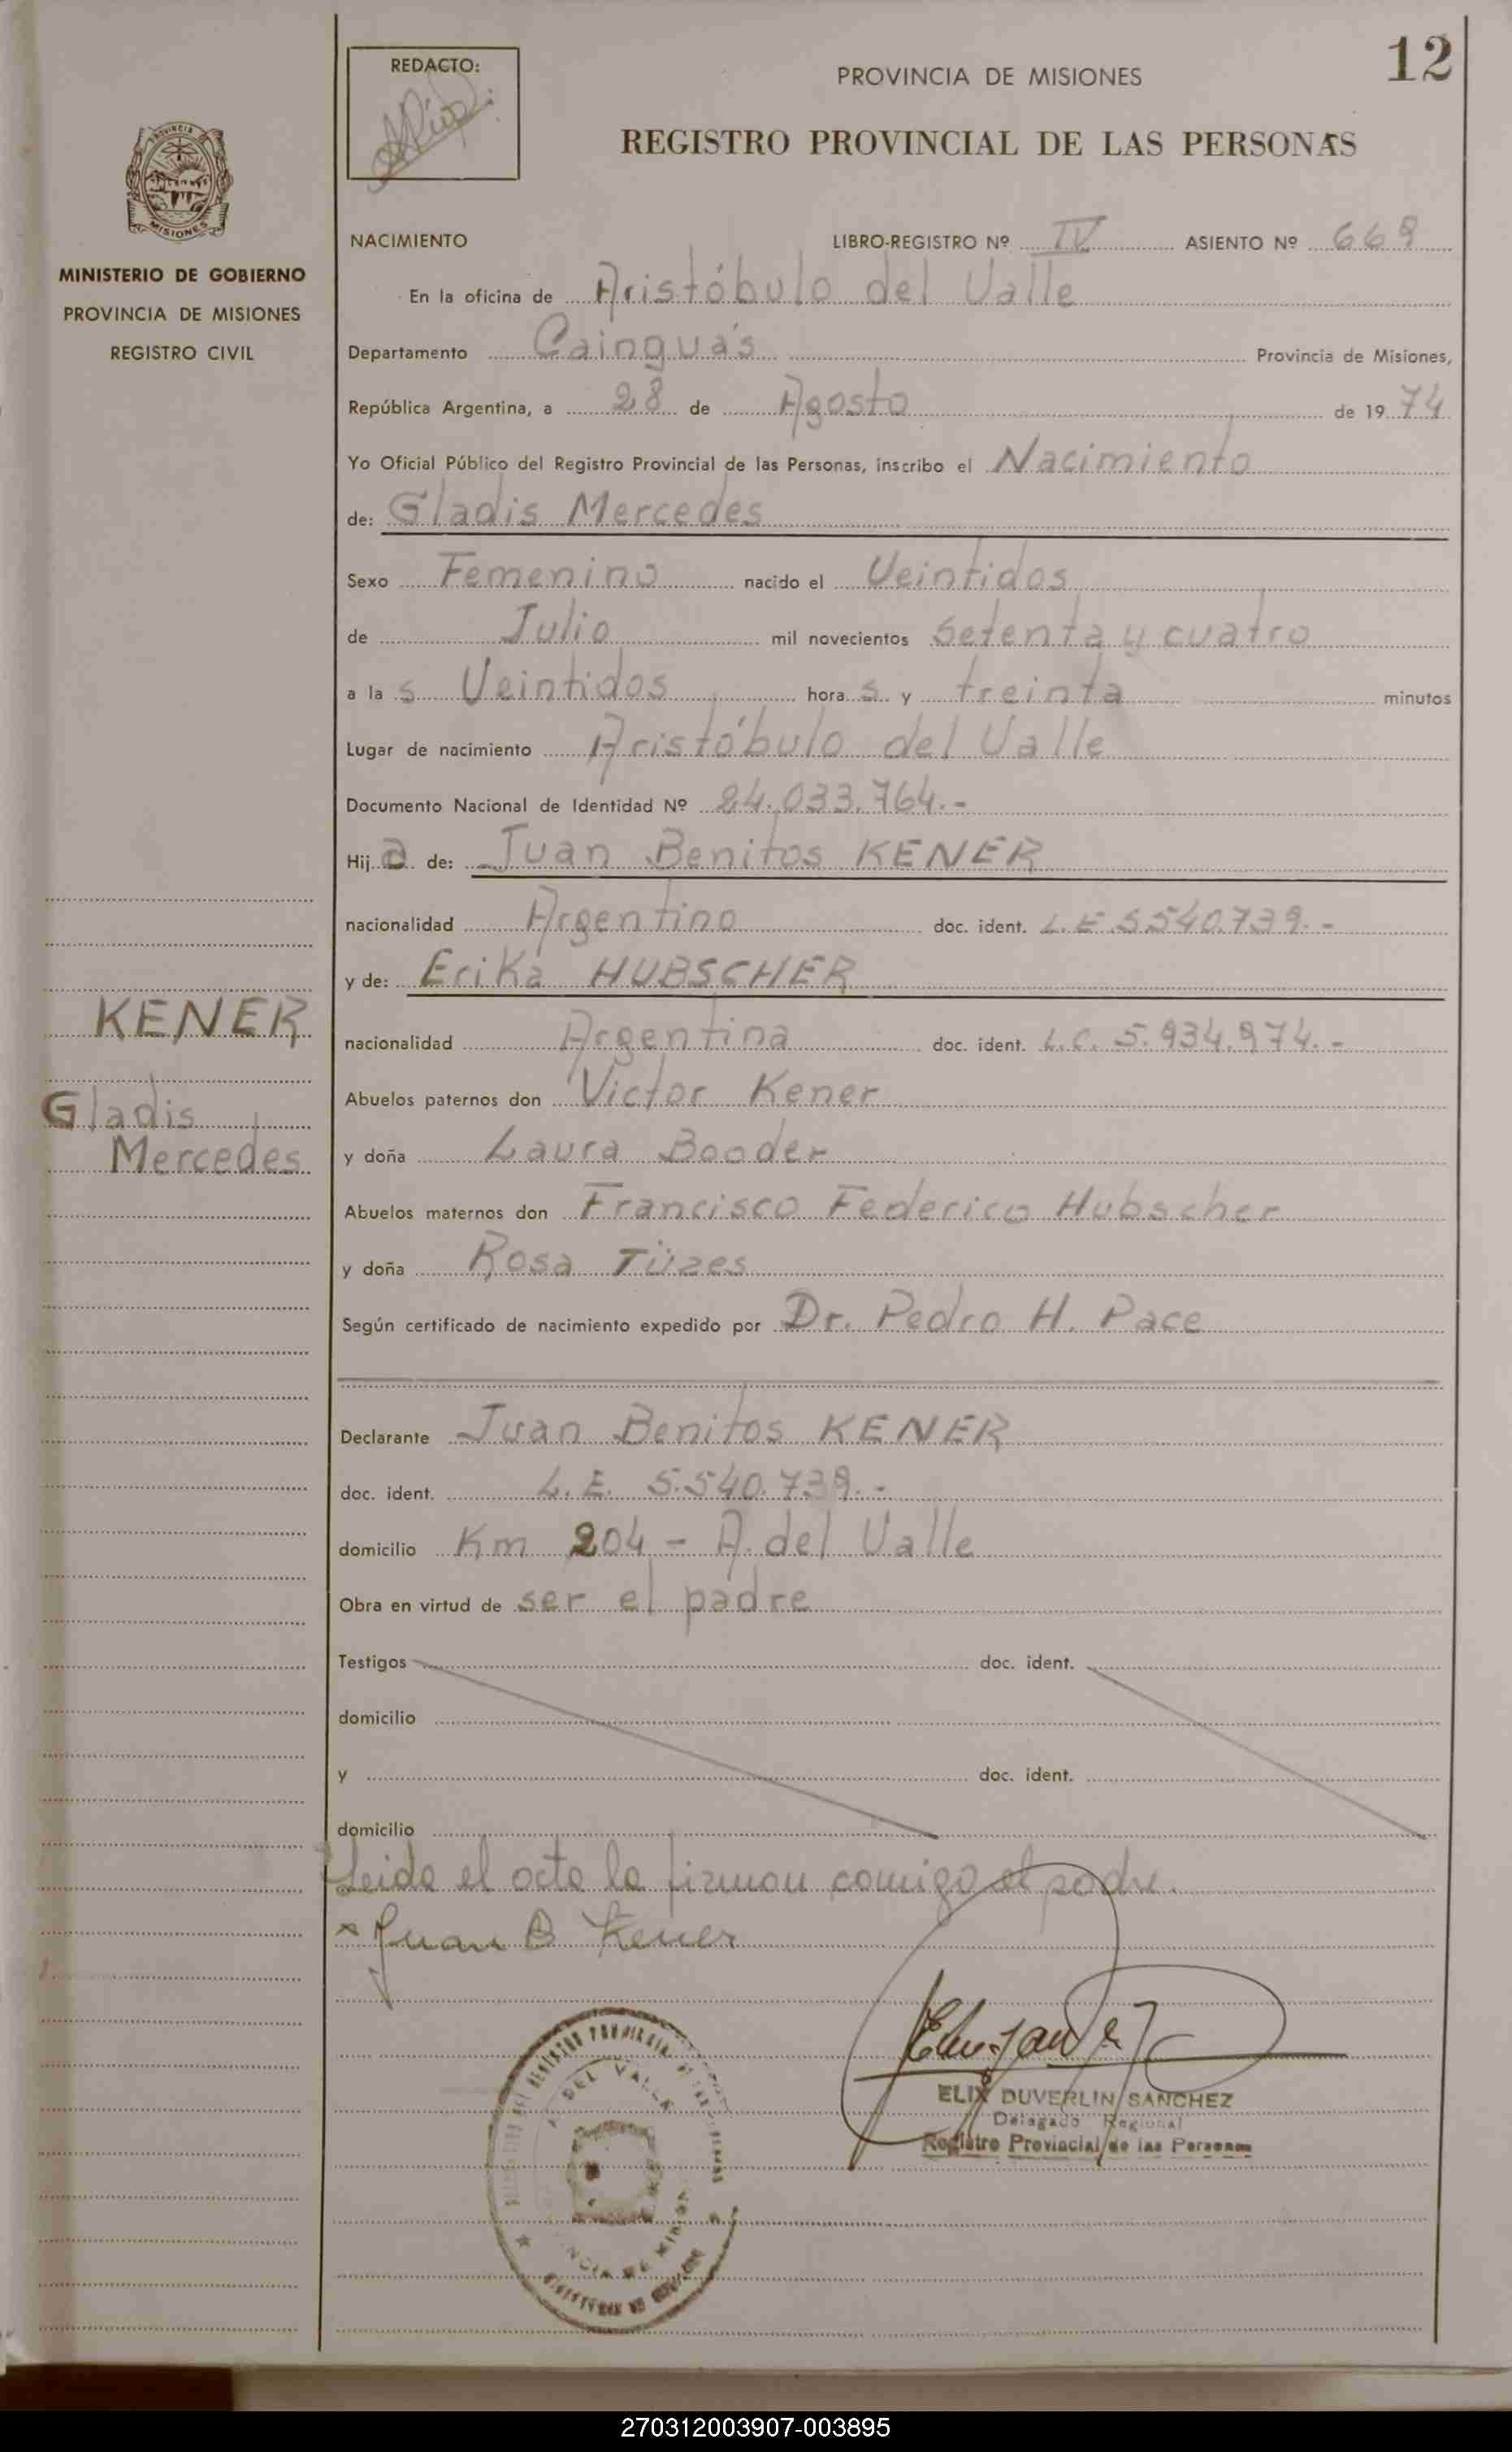 12
REDACTO:
PROVINCIA DE MISIONES
REGISTRO PROVINCIAL DE LAS PERSONAS
PROVINCIA
MISIONES
MINISTERIO DE GOBIERNO
PROVINCIA DE MISIONES
REGISTRO CIVIL
NACIMIENTO LIBRO-REGISTRO Nº IV ASIENTO Nº 669
En la oficina de Aristóbulo del Valle
Departamento Cainguás Provincia de Misiones,
República Argentina, a 28 de Agosto de 1974
Yo Oficial Público del Registro Provincial de las Personas, inscribo el Nacimiento
de: Gladis Mercedes
Sexo Femenino nacido el Veintidos
de Julio mil novecientos setenta y cuatro
a las Veintidos horas y treinta minutos
Lugar de nacimiento Aristóbulo del Valle
Documento Nacional de Identidad Nº 24.033.764.-
Hija de: Juan Benitos KENER
nacionalidad Argentino doc. ident. L.E.5.540.739.-
y de: Erika HUBSCHER
nacionalidad Argentina doc. ident. L.C. 5.934.974.-
Abuelos paternos don Victor Kener
y doña Laura Booder
Abuelos maternos don Francisco Federico Hubscher
y doña Rosa Tüzes
Según certificado de nacimiento expedido por Dr. Pedro H. Pace
KENER
Gladis
Mercedes
Declarante Juan Benitos KENER
doc. ident. L.E. 5.540.739.-
domicilio Km 204 - A. del Valle
Obra en virtud de ser el padre
Testigos doc. ident.
domicilio
y doc. ident.
domicilio
Leida el acta la firman comigo el padre.
x Juan B Kener
DEL VALLE
ELIX DUVERLIN SANCHEZ
Delegado Regional
Registro Provincial de las Personas
270312003907-003895